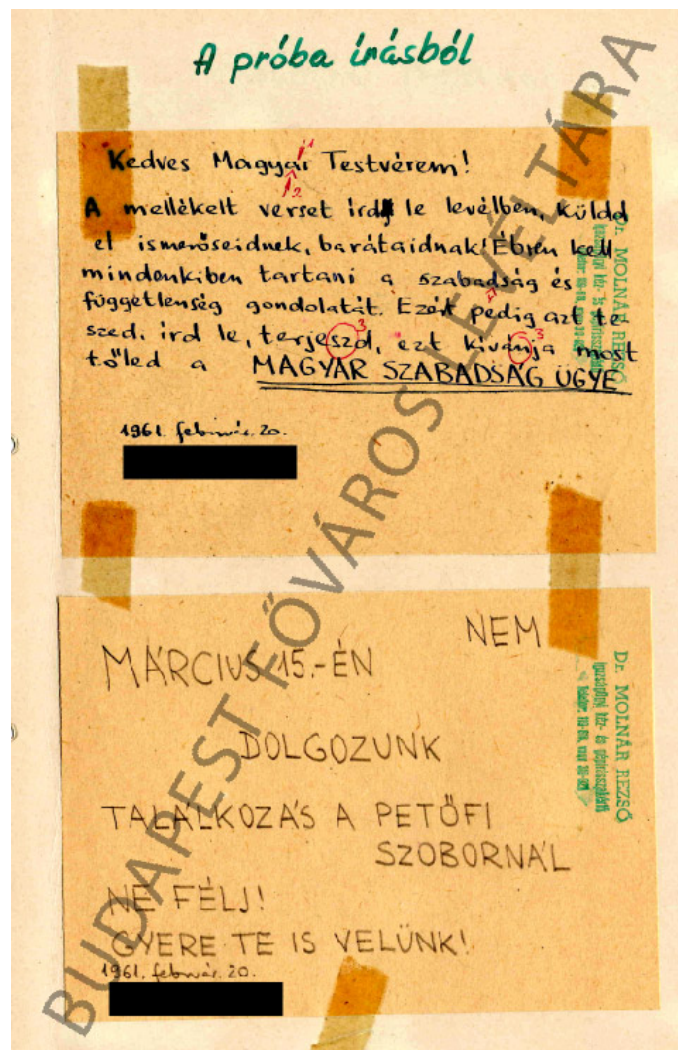 A próba írásból
Kedves Magyar Testvérem!
A mellékelt verset írd le levélben, küldd
el ismerőseidnek, barátaidnak! Ébren kell
mindenkiben tartani a szabadság és
függetlenség gondolatát. Ezért pedig azt te
szed: írd le, terjeszd, ezt kívánja most
tőled a MAGYAR SZABADSÁG ÜGYE
1961. február. 20.
Dr. MOLNÁR REZSŐ
NEM
MÁRCIUS 15.-ÉN
DOLGOZUNK
TALÁLKOZÁS A PETŐFI
SZOBORNÁL
NE FÉLJ!
GYERE TE IS VELÜNK!
1961. február. 20.
Dr. MOLNÁR REZSŐ
igazságügyi kéz- és gépírásszakértő
BUDAPEST FŐVÁROS LEVÉLTÁRA